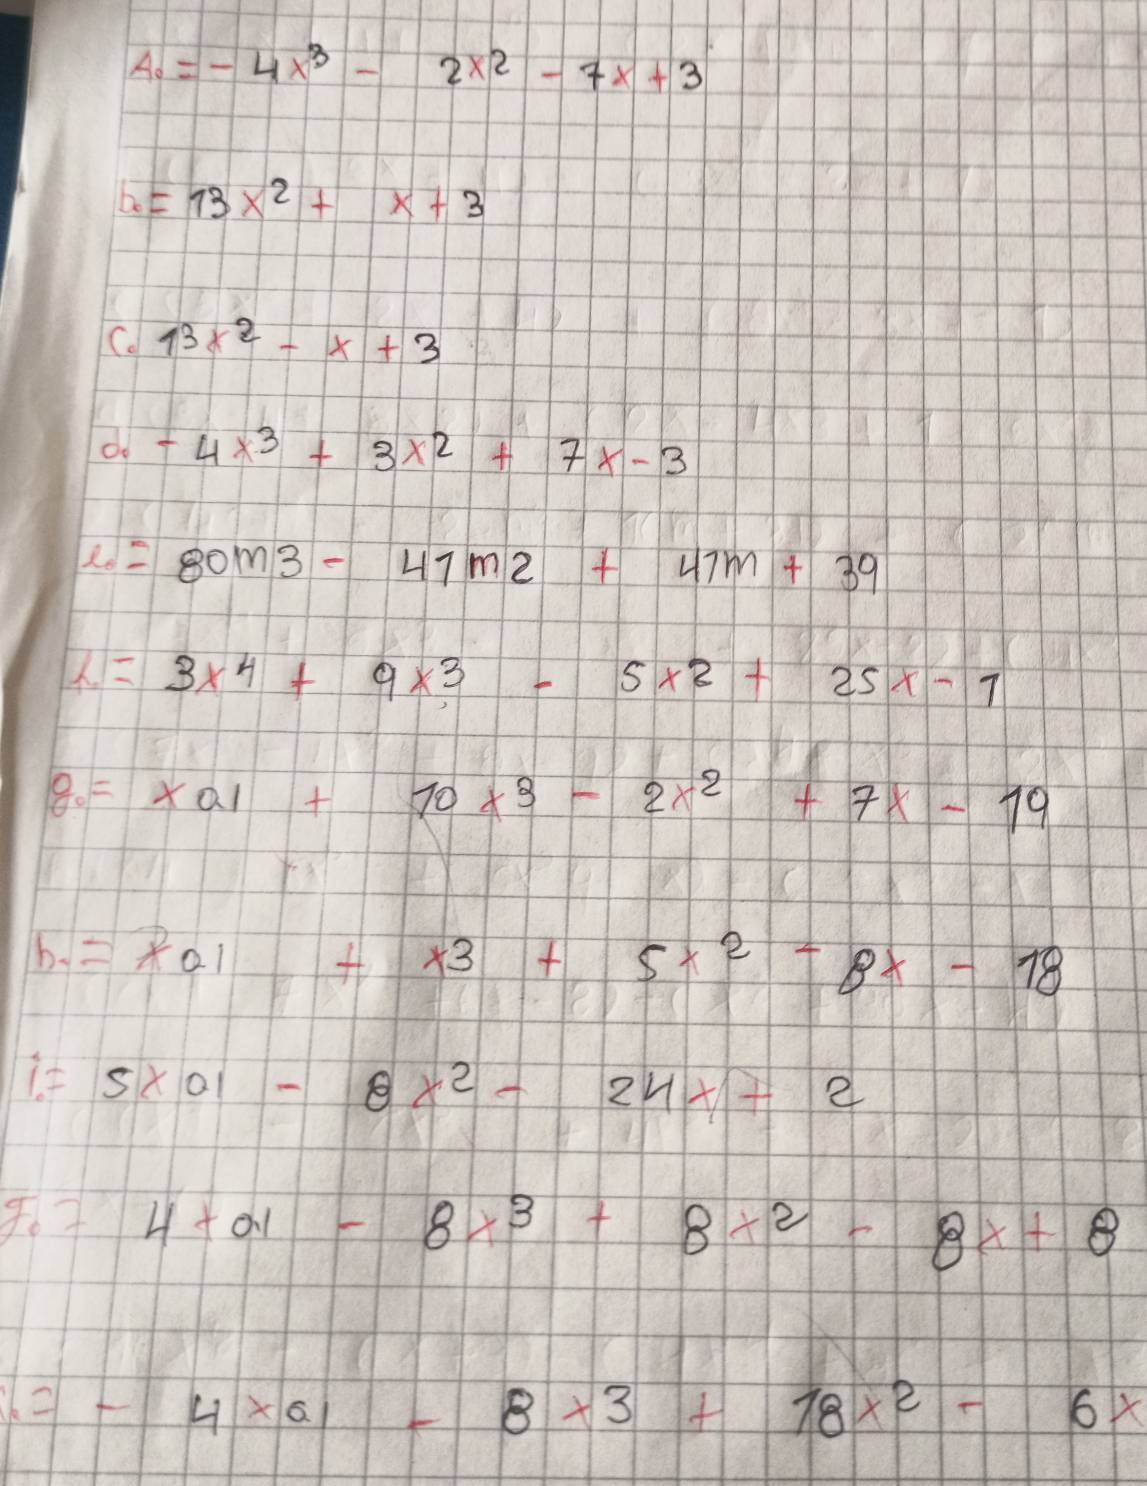 A. = - 4x³ - 2x² - 7x + 3
b. = 13x² + x + 3
c. 13x² - x + 3
d. - 4x³ + 3x² + 7x - 3
e. = 80m3 - 41m2 + 41m + 39
= 3x⁴ + 9x3 - 5x2 + 25x - 1
g. = x al + 10x³ - 2x² + 7x - 19
h. = x al + x3 + 5x² - 8x - 18
i. = 5x al - 8x² - 24x + 2
= 4x al - 8x³ + 8x² - 8x + 8
= - 4x al - 8x3 + 18x² - 6x